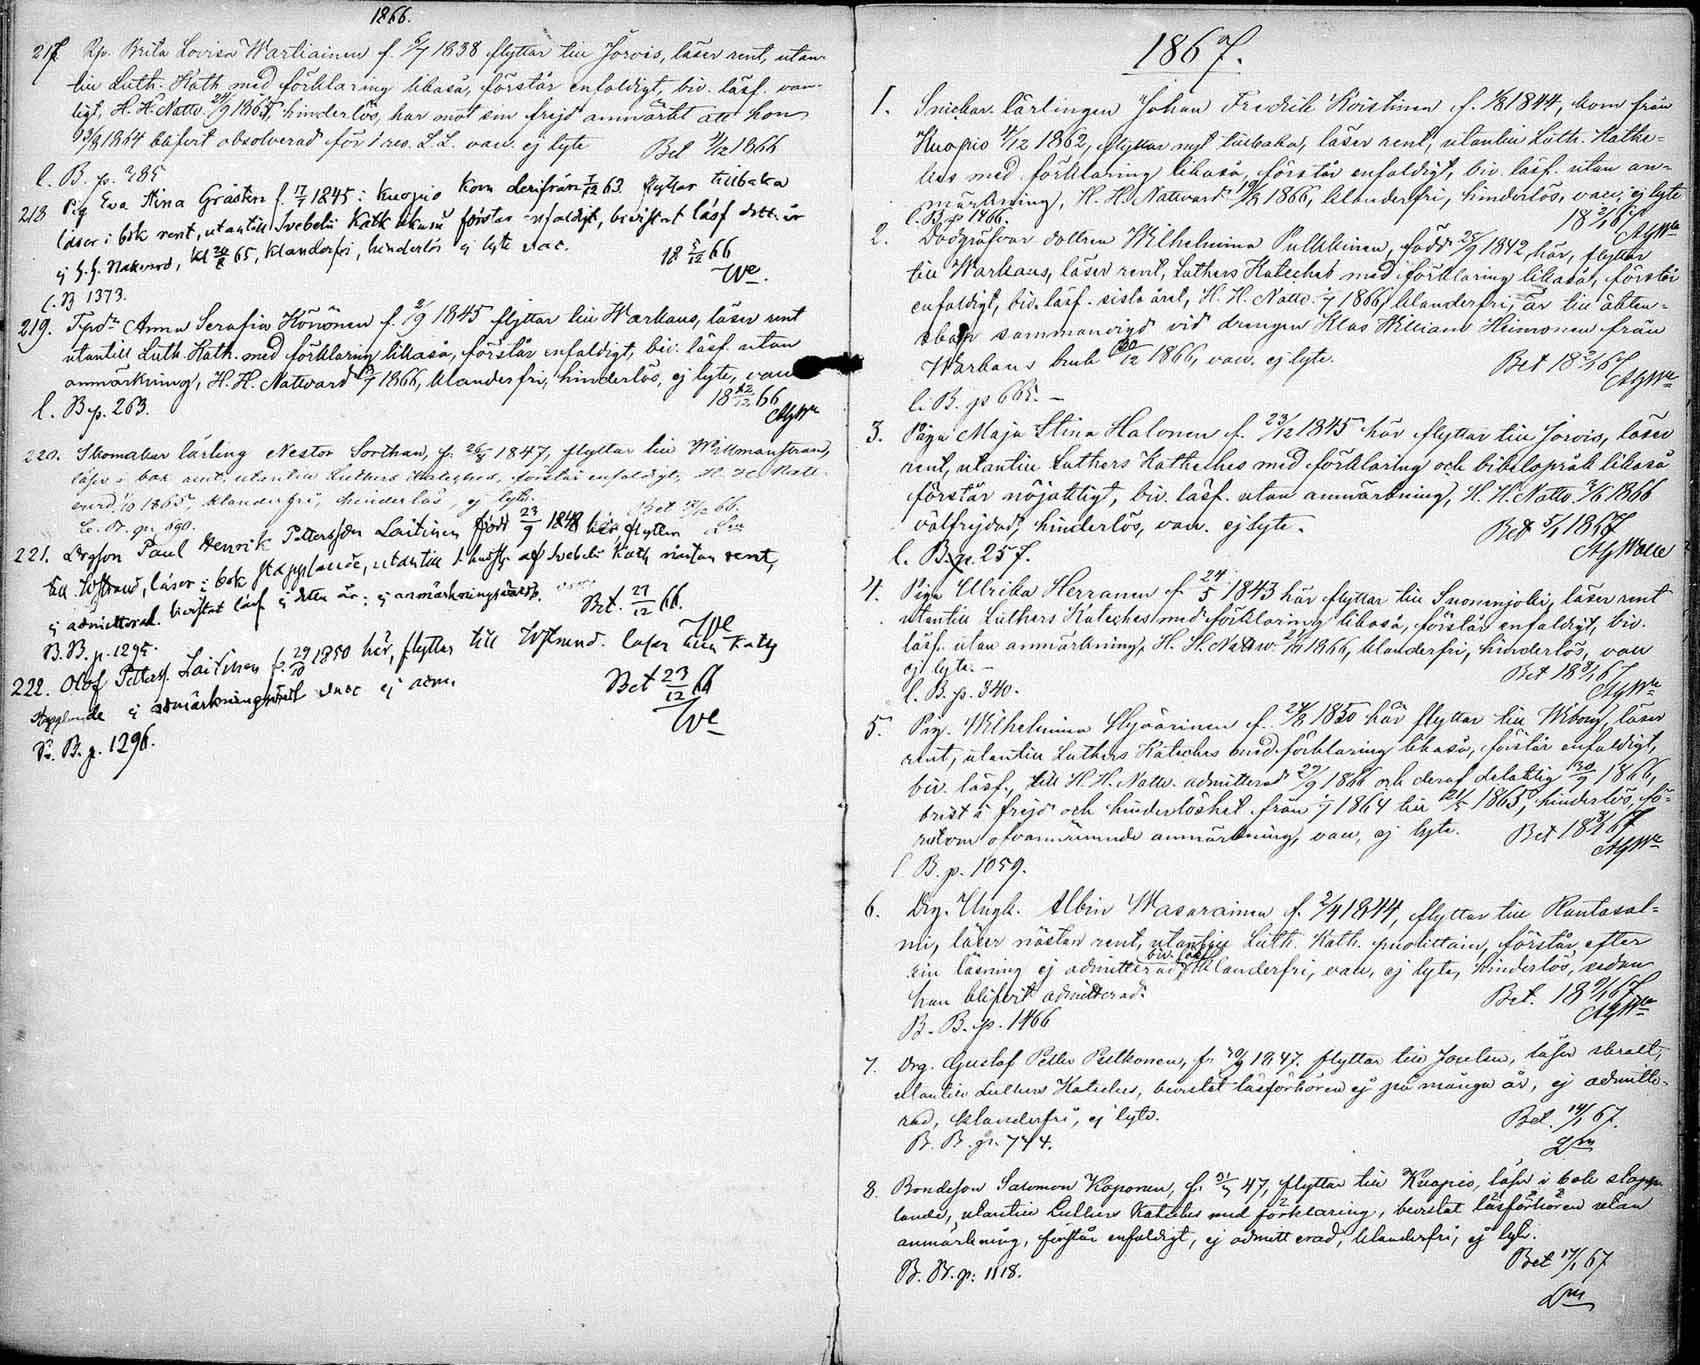 1866.
217. Pp. Brita Lovisa Wartiainen f. 5/7 1838 flyttar till Jorois, läser rent, utan-
till Luth. Kath. med förklaring likaså, förstår enfaldigt, biv. läsf. van-
ligt, H. H. Nattv. 24/9 1865, hinderlös, har emot sin frejd anmärkt att hon
13/8 1864 blifvit absolverad för 1 res. L. L. vacc. ej lyte Bet 3/12 1866
l. B. p. 785
218 Pig Eva Stina Gråsten f. 17/7 1845 i Kuopio kom derifrån 7/12 63 flyttar tillbaka
läser i bok rent, utantill Svebelii Kath likaså förstår enfaldigt, bevistat läsf detta år
ej H. H. Nattvard, klanderfri, hinderlös ej lyte vac. 18 5/12 66
We.
l. B 1373.
219. Anna Serafia Könönen f. 2/9 1845 flyttar till Warkaus, läser rent
utantill Luth. Kath. med förklaring likaså, förstår enfaldigt, biv. läsf. utan
anmärkning, H. H. Nattvard 1866, klanderfri, hinderlös, ej lyte, vacc
18 12/12 66
l. B p. 263.
220. Skomakar lärling Nestor Sorthan, f. 26/8 1847, flyttar till Willmanstrand,
läser i bok rent, utantill Luthers Kateches, förstår enfaldigt, H. H. Natt-
vard 1865, klanderfri, hinderlös, ej lyte.
Bet 18/12 66.
l. B. p. 890.
221. Drgson Paul Henrik Pettersson Laitinen född 23/9 1848 här flyttar
till Wstrand, läser i bok stapplande, utantill Svebelii Kath nästan rent,
ej admitterad. bevistat läsf ej detta år; ej anmärkningsvärdt.
Bet. 21/12 66.
We
B. B. p. 1295.
222. Olof Petterss. Laitinen f. 29/10 1850 här, flyttar till Wstrand. läser Kath
stapplande ej anmärkningsvärdt vacc ej adm.
Bet 23/12 66
We
B. p. 1296.
1867.
1. Snickar lärlingen Johan Fredrik Koistinen f. 1844, kom från
Kuopio 4/12 1862, flyttar nu tillbaka, läser rent, utantill Luth. Kathe-
kes med förklaring likaså, förstår enfaldigt, biv. läsf. utan an-
märkning, H. H. Nattvard 1866, klanderfri, hinderlös, vacc, ej lyte
l. B. p 1466. 18 2/1 67
2. Dödgräfvar dottren Wilhelmina Pulkkinen, född 25/9 1842, här, flyttar
till Warkaus, läser rent, Luthers Kateches med förklaring likaså, förstår
enfaldigt, biv. läsf. sista året, H. H. Nattv. 1866, klanderfri, är till äkten-
skap sammanvigd vid drengen Klas William Heimonen från
Warkaus bruk 30/12 1866, vacc. ej lyte. Bet 18 2/1 67
l. B. p 665. –
3. Pigan Maja Stina Halonen f. 23/12 1845 här flyttar till Jorois, läser
rent, utantill Luthers Katheches med förklaring och bibelspråk likaså
förstår nöjaktigt, biv. läsf. utan anmärkning, H. H. Nattv. 1866
välfrejdad, hinderlös, vacc. ej lyte. Bet 5/1 1867
l. B. p. 257.
4. Pigan Ulrika Herranen f. 24/5 1843 här flyttar till Suonenjoki, läser rent
utantill Luthers Kateches med förklaring likaså, förstår enfaldigt, biv.
läsf. utan anmärkning, H. H. Nattv. 1866, klanderfri, hinderlös, vacc
ej lyte. – Bet 18 8/1 67
l. B. p. 340.
5. Pig. Wilhelmina Hyvärinen f. 1850 här flyttar till Wiborg, läser
rent, utantill Luthers Kateches med förklaring likaså, förstår enfaldigt,
biv. läsf., till H. H. Nattv. admitterad 29/9 1866 och deraf delaktig 30/9 1866,
brist å frejd och hinderlöshet från 1864 till 1865, hinderlös, för-
utom ofvannämnde anmärkning, vacc, ej lyte. Bet 18 8/1 67
l. B. p. 1059.
6. Drg. Ungk. Albin Wasarainen f. 2/4 1844, flyttar till Rantasal-
mi, läser nästan rent, utantill Luth. Kath. puolittain, förstår efter
sin läsning ej admitterad, biv. läsf klanderfri, vacc, ej lyte, hinderlös, sedan
han blifvit admitterad. Bet. 18 9/1 67
B. B. p. 1466
7. Drg. Gustaf Petter Pulkonen, f. 1847. flyttar till Joensu, läser skralt,
utantill Luthers Kateches, bevistat läsförhören ej på många år, ej admitte-
rad, klanderfri, ej lyte. Bet. 14/1 67.
B. B. p. 744.
8. Bondeson Salomon Koponen, f. 47, flyttar till Kuopio, läser i bok stapp-
lande, utantill Luthers Kateches med förklaring, bevistat läsförhören utan
anmärkning, förstår enfaldigt, ej admitterad, klanderfri, ej lyte.
Bet 17/1 67
B. B. p: 1118.